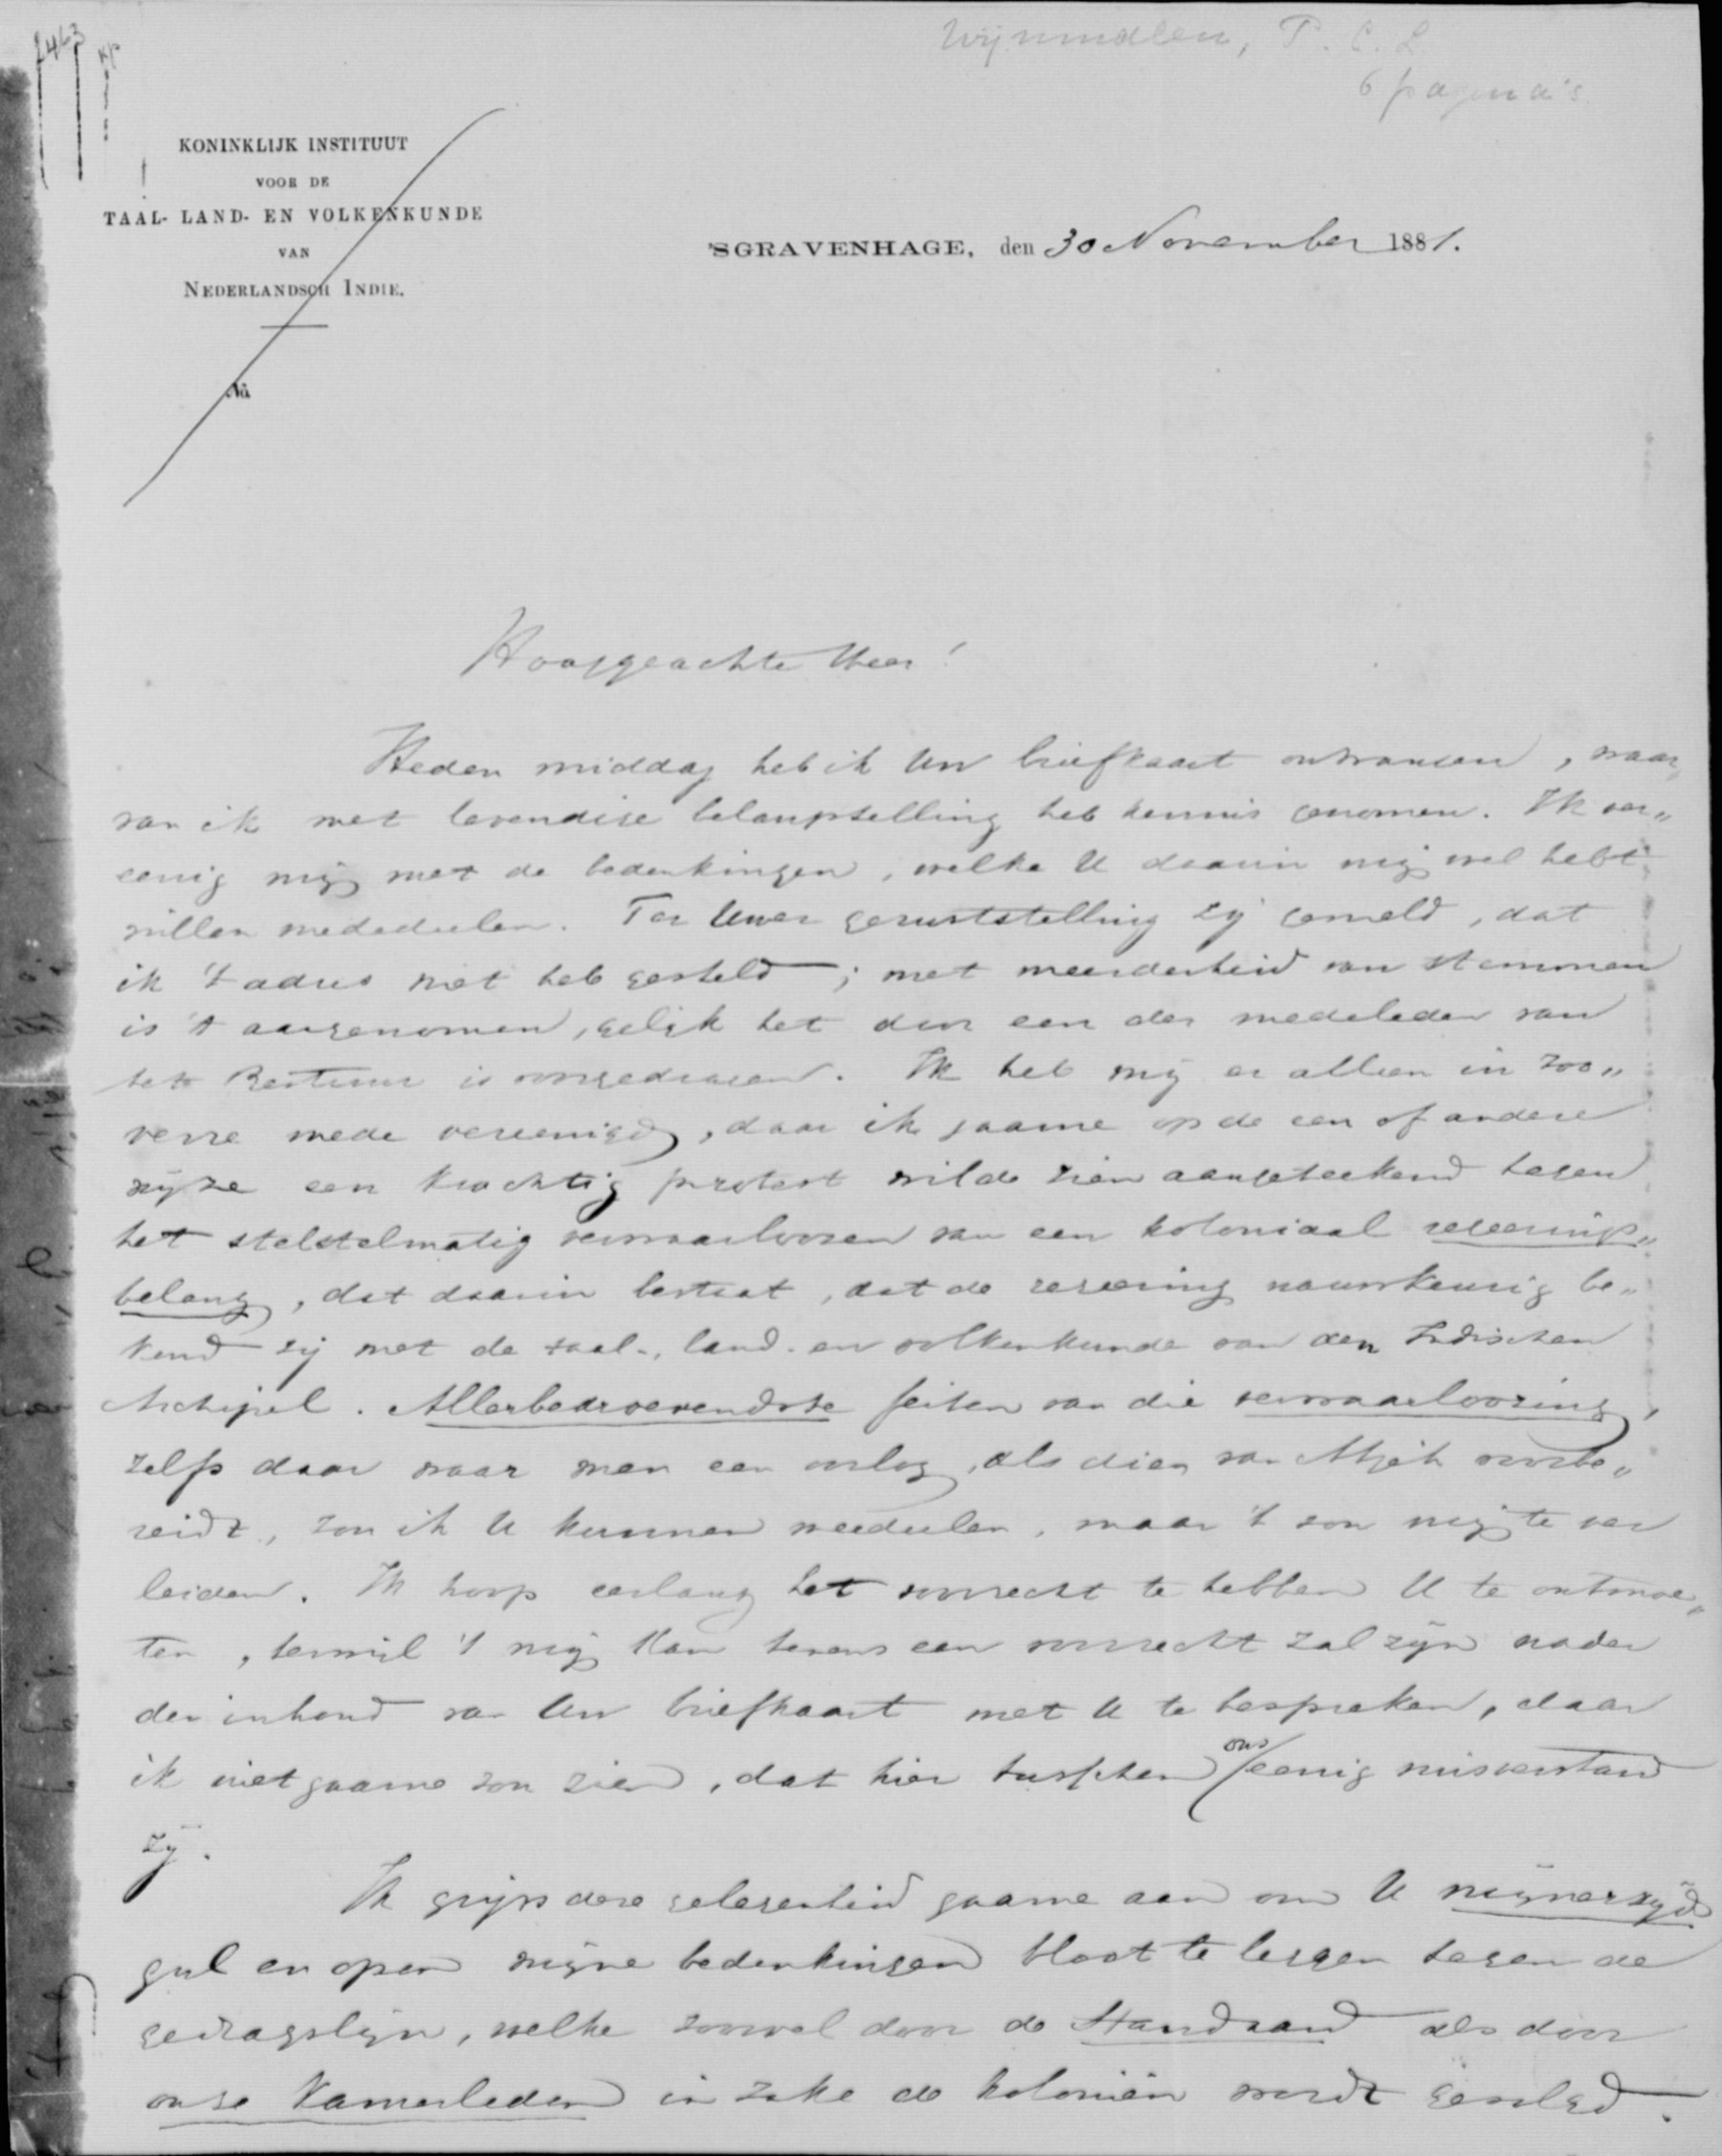 2463
Wijnmalen, T. C. L.
6 pagina's
KONINKLIJK INSTITUUT
VOOR DE
TAAL- LAND- EN VOLKENKUNDE
VAN
NEDERLANDSCH INDIE.
No.
'SGRAVENHAGE, den 30 November 1881.
Hooggeachte Heer!
Heden middag heb ik Uw briefkaart ontvangen, waar„
van ik met levendige belangstelling heb kennis genomen. Ik ver„
eenig mij met de bedenkingen, welke U daarin mij wel hebt
willen mededeelen. Ter Uwer geruststelling zij gemeld, dat
ik 't adres niet heb gesteld; met meerderheid van stemmen
is 't aangenomen, gelijk het door een der medeleden van
het Bestuur is voorgedragen. Ik heb mij er alleen in zoo„
verre mede vereenigd, daar ik gaarne op de een of andere
wijze een krachtig protest wilde zien aangeteekend tegen
het stelstelmatig verwaarloozen van een koloniaal regeerings„
belang, dat daarin bestaat, dat de regeering nauwkeurig be„
kend zij met de taal-, land- en volkenkunde van den Indischen
Archipel. Allerbedroevendste feiten van die verwaarloozing,
zelfs daar waar men een oorlog, als dien van Atjeh voorbe„
reidt, zou ik U kunnen meedeelen, maar 't zou mij te ver
leiden. Ik hoop eerlang het voorrecht te hebben U te ontmoe„
ten, terwijl 't mij dan tevens een voorrecht zal zijn nader
den inhoud van Uw briefkaart met U te bespreken, daar
ik niet gaarne zou zien, dat hier tusschen ons eenig misverstand
zij.
Ik grijp deze gelegenheid gaarne aan om U mijnerzijds
gul en open mijne bedenkingen bloot te leggen tegen de
gedragslijn, welke zoowel door de Standaard als door
onze Kamerleden in zake de koloniën wordt gevolgd.